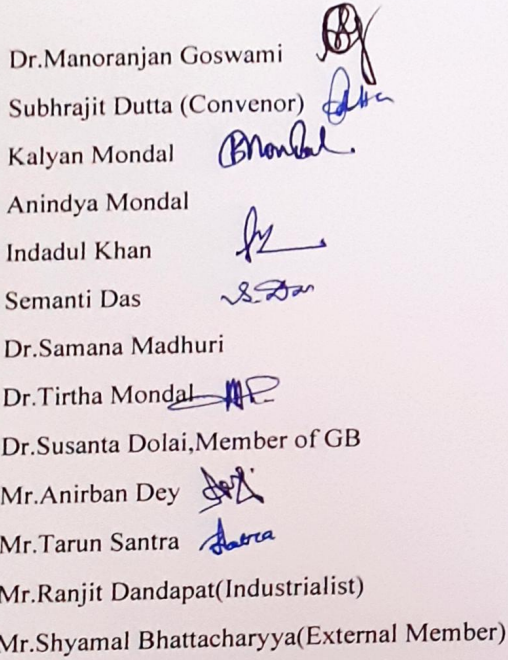 Dr.Manoranjan Goswami
Subhrajit Dutta (Convenor)
Kalyan Mondal
Anindya Mondal
Indadul Khan
Semanti Das S. Das
Dr.Samana Madhuri
Dr.Tirtha Mondal
Dr.Susanta Dolai,Member of GB
Mr.Anirban Dey
Mr.Tarun Santra
Mr.Ranjit Dandapat(Industrialist)
Mr.Shyamal Bhattacharyya(External Member)